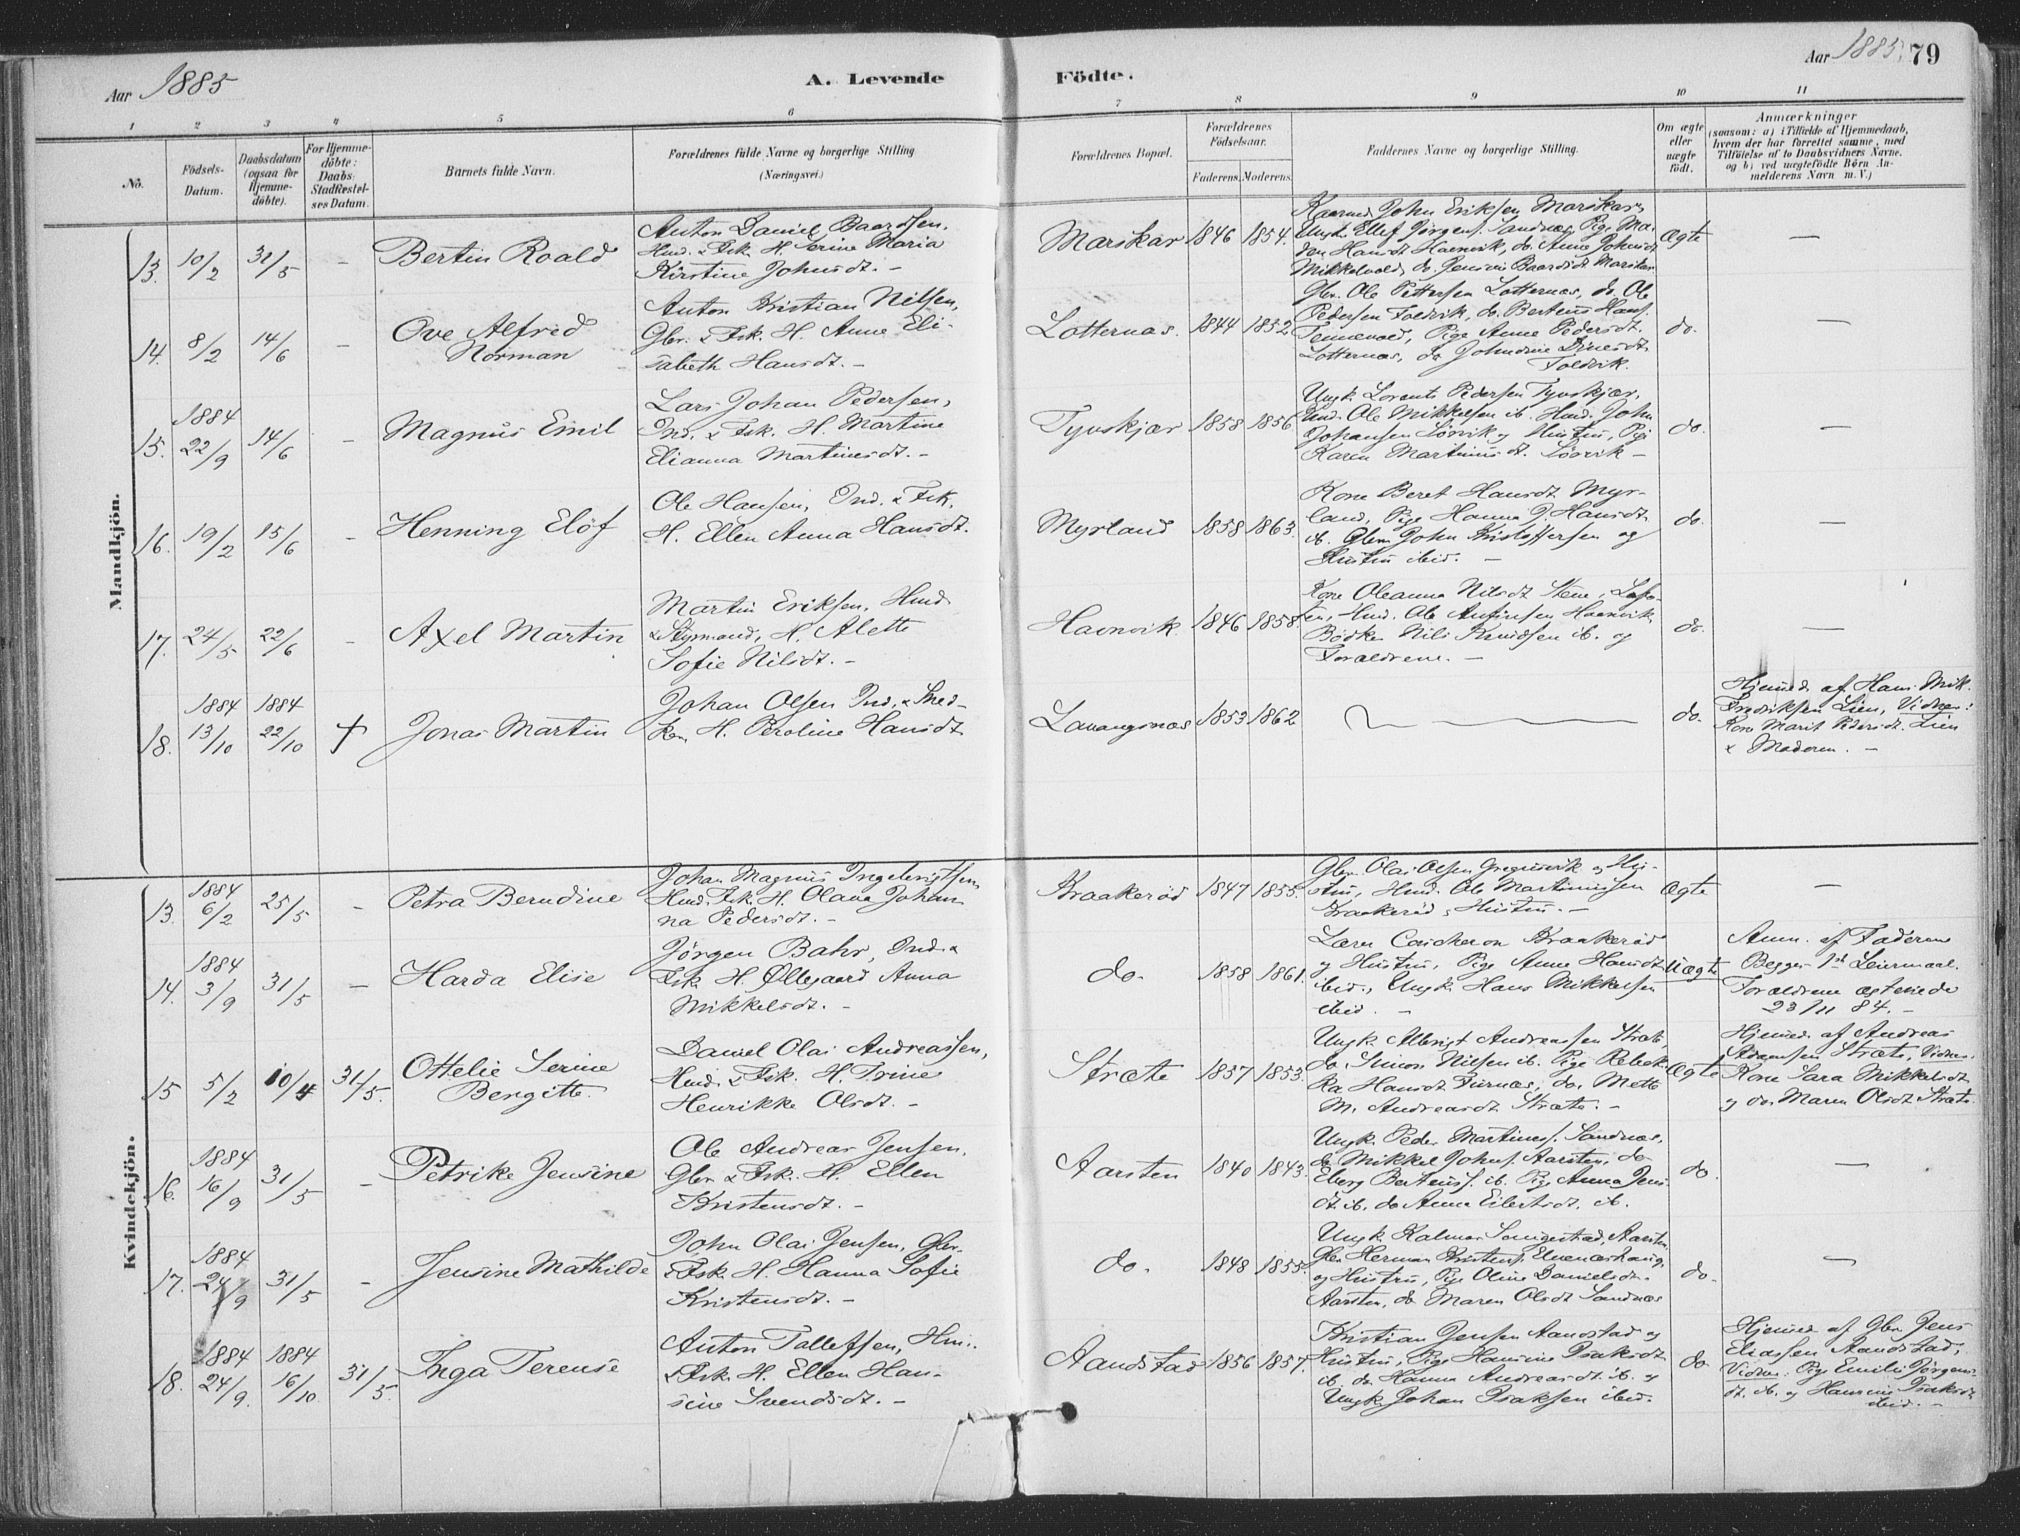 Aar 1885
A. Levende
Födte.
Aar 1885. 79
1 2 3 4 5 6 7 8 9 10 11
No.
Födsels-Datum.
Daabsdatum (ogsaa for Hjemme-döbte).
For Hjemme-döbte: Daabs: Stadfæstel-ses Datum.
Barnets fulde Navn.
Forældrenes fulde Navne og borgerlige Stilling
(Næringsvei.)
Forældrenes Bopæl.
Forældrenes Födselsaar.
Faderens. Moderens.
Faddernes Navne og borgerlige Stilling.
Om ægte eller uægte födt.
Anmærkninger
(saasom: a) i Tilfælde af Hjemmedaab,
hvem der har forrettet samme, med
Tilföielse af to Daabsvidners Navne.
og b) ved uægtefödte Börn An-
melderens Navn m. V.)
Mandkjön.
13. 10/2 31/5 - Bertin Roald
Anton Daniel Baardsen,
Hmd. & Fsk. H. Serine Maria
Kirstine Johnsdt. -
Marskar 1846 1854.
John Eriksen Marskar,
Ungk. Ellef Jörgens. Sandnæs, Pige Ma-
Hansdt Havnvik, do. Anne Johnsdt
Mikkelvold, do. Baardsdt Marskar
Ægte —
14. 8/2 14/6 - Ove Alfred
Norman
Anton Kristian Nilsen,
Gbr. & Fsk. H. Anne Eli-
sabeth Hansdt. -
Lotternæs. 1844 1852
Gbr. Ole Pettersen Lotternæs, do. Ole
Pedersen Foldvik, do. Berteus Hans.
Pige Anne Pedersdt.
Lotternæs, do Johndine
Foldvik.
do. —
15. 1884 22/9 14/6 - Magnus Emil
Lars Johan Pedersen,
Ind. & Fsk. H. Martine
Elianna Martinusdt. -
Tyvskjær 1858 1856
Ungk. Lorents Pedersen Tyvskjær,
Ind. Ole Mikkelsen ib. Hmd. John
Johansen Lörvik og Hustru, Pige
Karen Martinusdt. Lörvik -
do. —
16. 19/2 15/6 - Henning Elöf
Ole Hansen, Ind. & Fsk.
H. Ellen Anna Hansdt.
Myrland 1858 1863.
Kone Beret Hansdt Myr-
land, Pige Hanna J. Hansdt.
ib. Gbrm John Kristoffersen og
Hustru ibid. -
do. —
17. 24/5 22/6 - Axel Martin
Martin Eriksen, Hmd.
& Styrmand, H. Alette
Sofie Nilsdt. -
Havnvik. 1846 1858.
Kone Oleanna Nilsdt Stene,
Hmd. Ole Havnvik,
Bödker Nils Knudsen ib. og
Forældrene. -
do. —
18. 1884 13/10 1884 22/10 + Jonas Martin
Johan Olsen Ind. & Smed-
H. Peroline Hansdt
Lavangsnæs 1853 1862
do.
Hjemmed. af Hans Mik.
Fredriksen Lien, Vidner:
Kone Marit Pedersdt. Lien
& Moderen. -
Kvindekjön.
13. 1884 6/2 25/5 - Petra Berndine
Johan Magnus Ingebrigtsen
Hmd. Fsk. H. Olava Johan-
na Pedersdt. -
Kraakeröd 1847 1855.
Gbr. Olai Olsen Gregusvik og Hu-
stru, Hmd. Ole Martinussen
Kraakeröd & Hustru. -
Ægte —
14. 1884 3/9 31/5 - Harda Elise
Jörgen Bahr, Ind. &
Fsk. H. Öllegaard Anna
Mikkelsdt. -
do. 1858 1861.
Lærer Kraakeröd
og Hustru, Pige Anne Hansdt
ibid., Ungk. Hans Mikkelsen
ibid. -
Uægte
Anm. af Faderen
Begges 1st Leiermaal.
Forældrene ægteviede
23/11 84. -
15 5/2 10/4 31/5. Ottelie Serine
Bergitte.
Daniel Olai Andreassen,
Hmd. & Fsk. H. Trine
Henrikke Olsdt. -
Stræte 1857 1853.
Ungk. Albrigt Andreassen Stræte,
do. Simon Nilsen ib. Pige Rebek-
ka Hansdt Furnæs, do. Mette
M. Andreasdt. Stræte. -
Ægte
Hjemmed. af Andreas
Adamsen Stræte, Vidner:
Kone Sara Mikkelsdt
og do. Maren Olsdt Stræte.
16. 1884 16/9 31/5 - Petrike Jensine
Ole Andreas Jensen,
Gbr. & Fsk. H. Ellen
Kristensdt. -
Aarsten 1840 1843.
Ungk. Peder Martinus. Sandnæs,
do Mikkel Johns. Aarsten, do
Eberg Berteus. ib. Pige Anna Jens-
dt. ib. do Anna Eilertsdt. ib.
do. —
17. 1884 24/9 31/5 - Jensine Mathilde
John Olai Jensen, Gbr.
& Fsk. H. Hanna Sofie
Kristensdt. -
do. 1848 1855.
Ungk Aarsten
Gbr. Herman Kristens.
og Hustru, Pige Oline Danielsdt.
Aarsten, do. Maren Olsdt Sandnæs
do. —
18. 1884 24/9. 1884 16/10 31/5. Inga Terense
Anton Tollefsen, Hm.
& Fsk. H. Ellen Han-
sine Svendsdt. -
Aandstad 1856 1857.
Kristian Jensen Aandstad og
Hustru, Pige Hansine Isaksdt
ib. do. Hanna Andreasdt. ib. og
Ungk. Johan Isaksen ibid.
do
Hjemmed af Gbr. Jens
Eliassen Aandstad,
Vidner: Pige Emilie Jörgens-
dt. ib. og Hansine Isaksdt
ibid. -